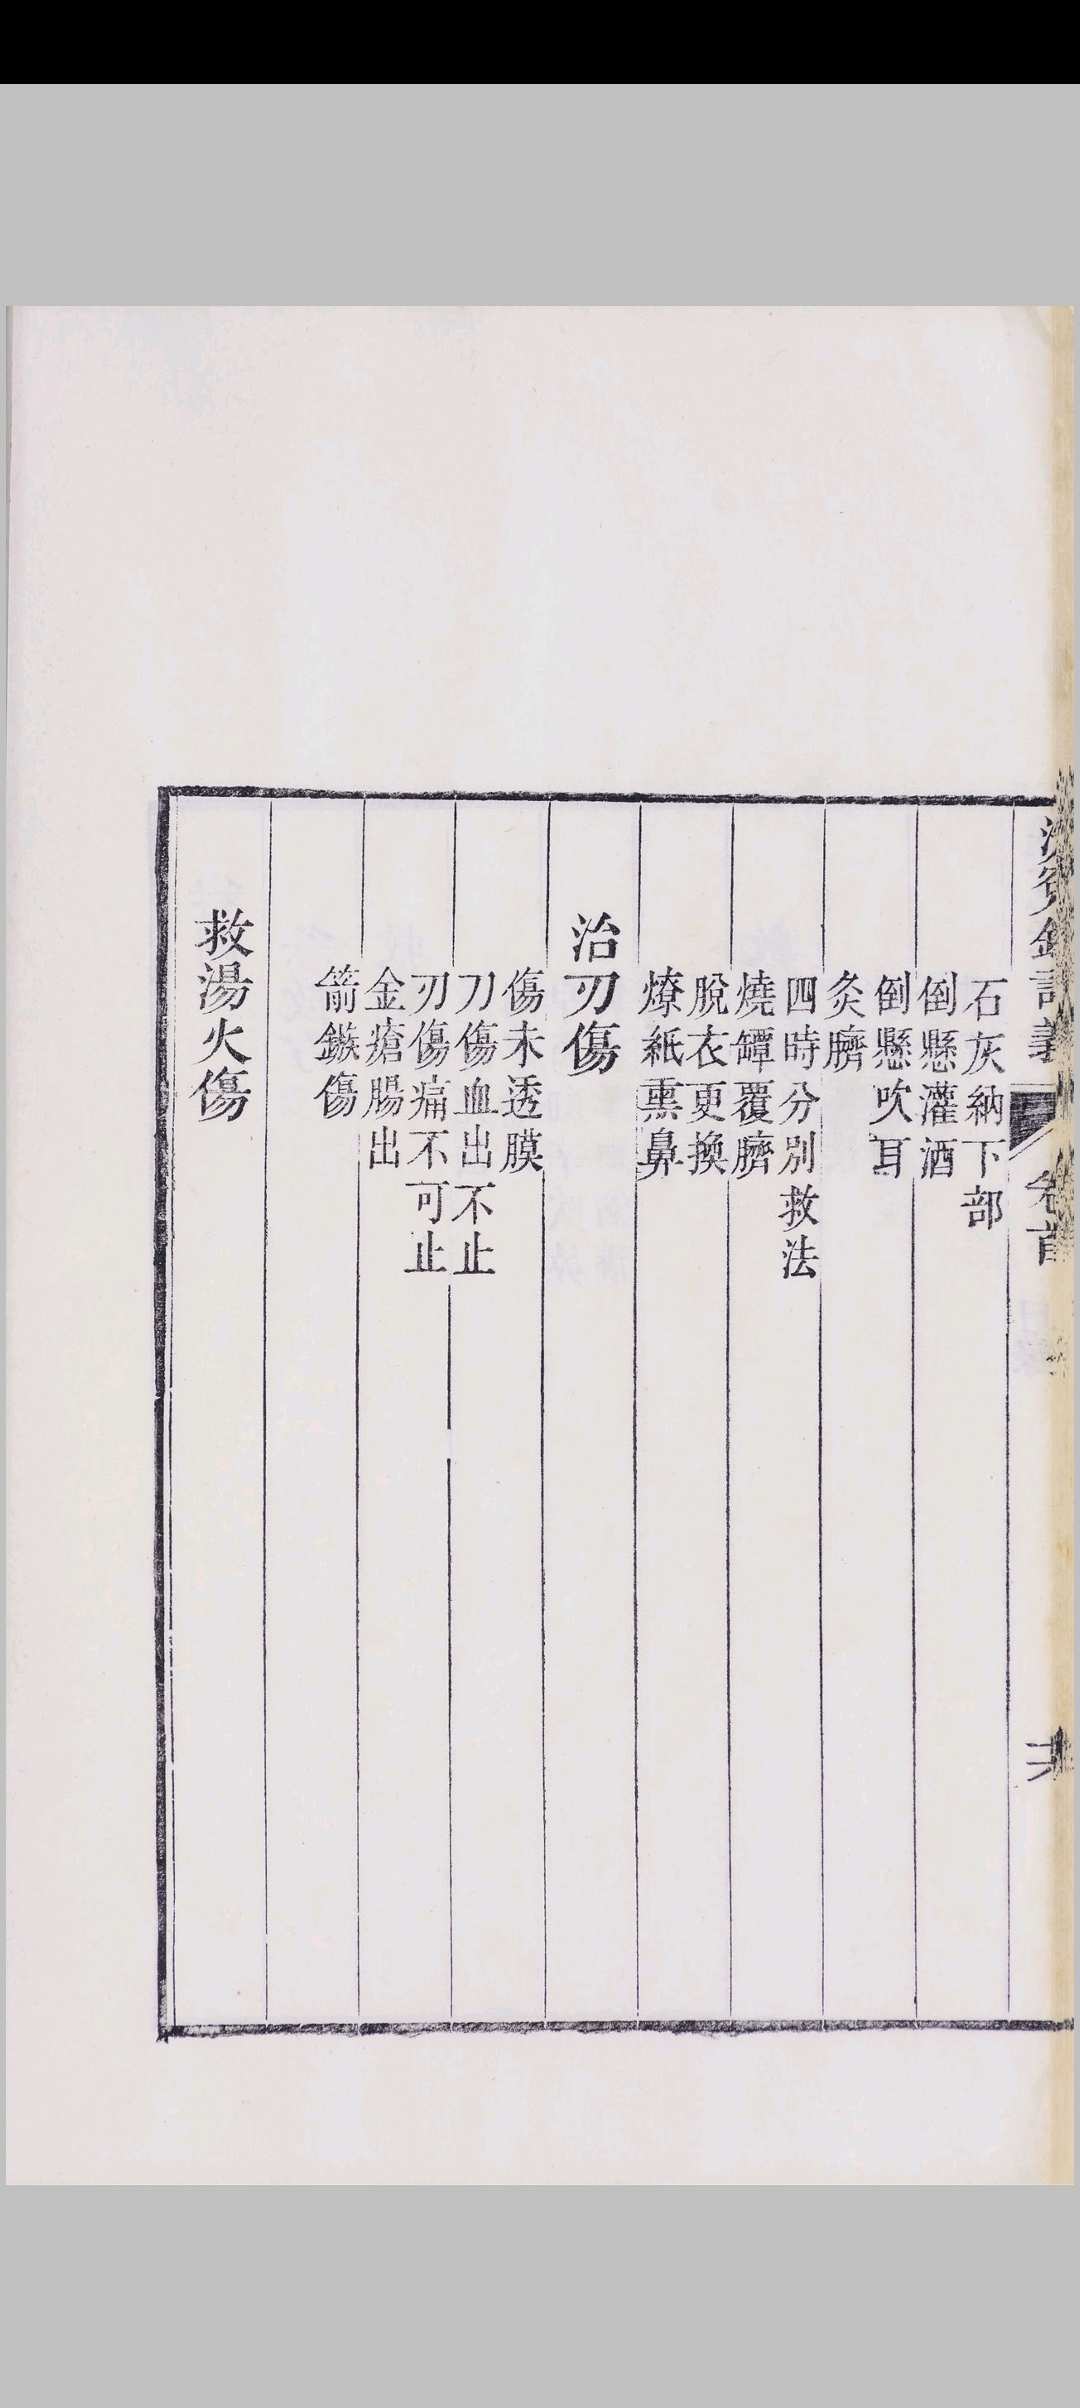 洗冤錄詳義
卷首
石灰納下部
倒懸灌酒
倒懸吹耳
灸臍
四時分別救法
燒罈覆臍
脫衣更換
燎紙熏鼻
治刃傷
傷未透膜
刀傷血出不止
刃傷痛不可止
金瘡腸出
箭鏃傷
救湯火傷